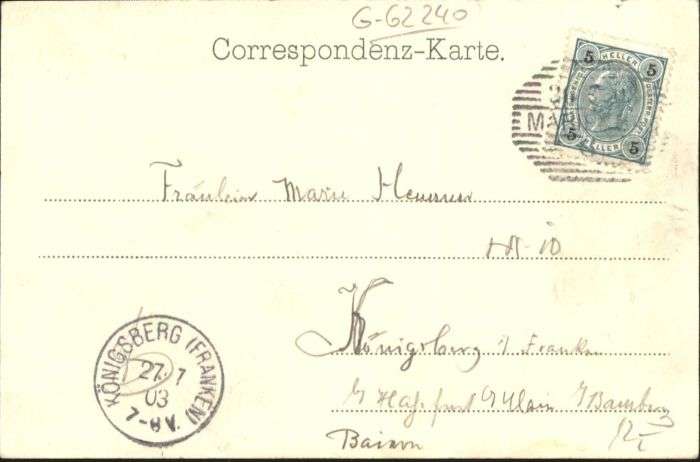 G-62240
Correspondenz-Karte.
5 HELLER 5
5 HELLER 5
MA
Fräulein Marie
Königsberg i/ Franken
Haßfurt i/Bamberg
Baiern
KÖNIGSBERG (FRANKEN)
27. 7
03
7-8 V.